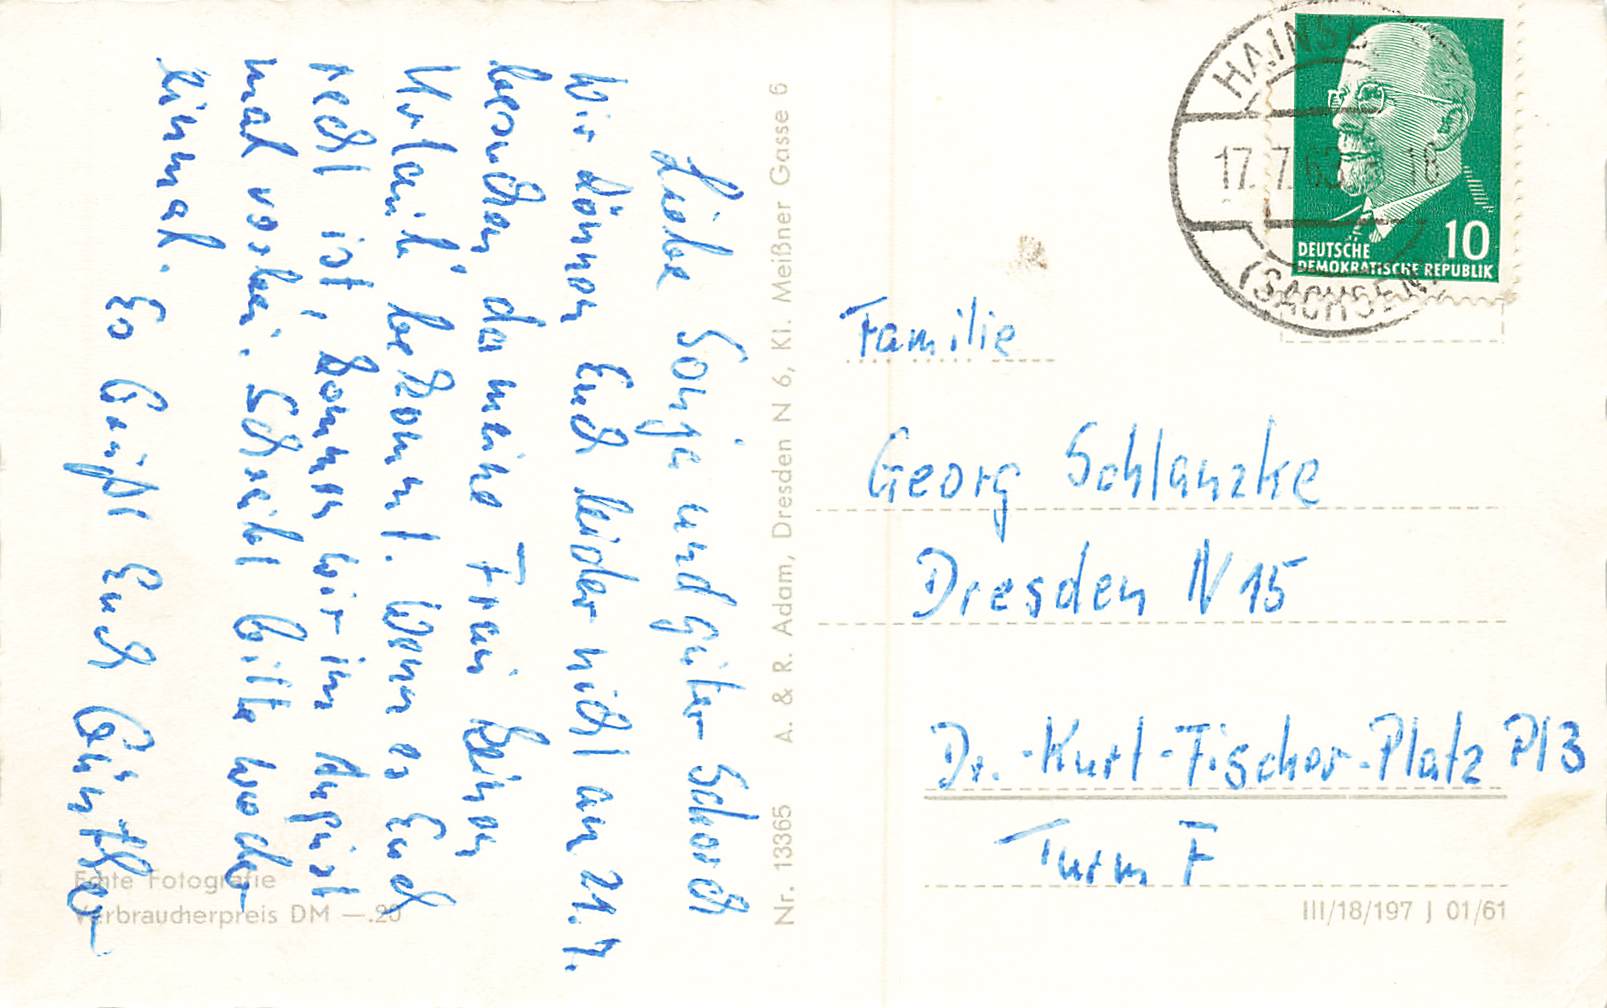 Liebe Sonja und guter Schorch
Wir können Euch leider nicht am 21.7.
besuchen, da meine Frau keinen
Urlaub bekommt. Wenn es Euch
recht ist, kommen wir im August
mal vorbei. Schreibt bitte wieder
einmal.
Es Grüßt Euch Günther
Echte Fotografie
Verbraucherpreis DM —.20
Nr. 13365 A. & R. Adam, Dresden N 6, Kl. Meißner Gasse 6
HAINSB
17.7.63 16
(SACHSEN)
10
DEUTSCHE
DEMOKRATISCHE REPUBLIK
Familie
Georg Schlanzke
Dresden N 15
Dr.-Kurt-Fischer-Platz Pl3
Turm F
III/18/197 J 01/61